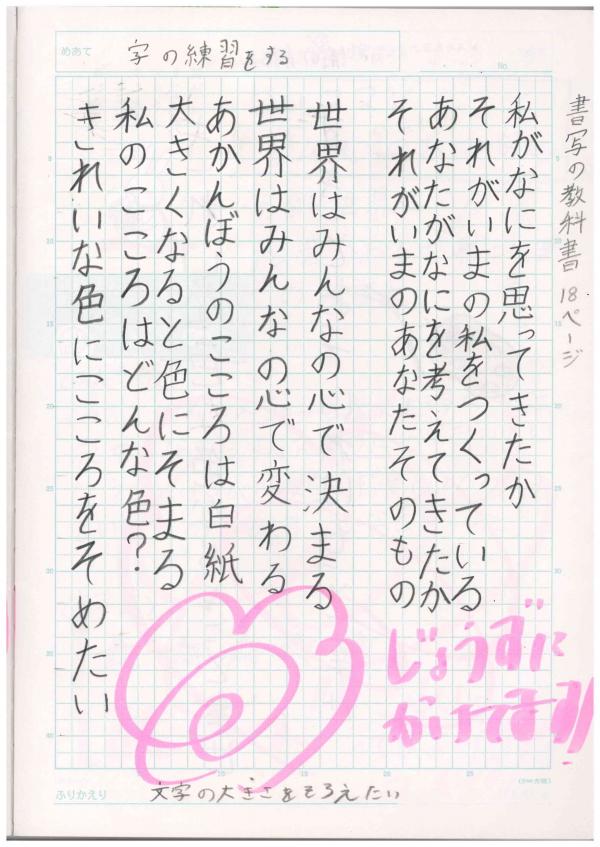 めあて
字の練習をする
No.
書写の教科書 18ページ
私がなにを思ってきたか
それがいまの私をつくっている
あなたがなにを考えてきたか
それがいまのあなたそのもの
世界はみんなの心で決まる
世界はみんなの心で変わる
あかんぼうのこころは白紙
大きくなると色にそまる
私のこころはどんな色?
きれいな色にこころをそめたい
じょうずに
かけてます!!
ふりかえり
文字の大きさをそろえたい